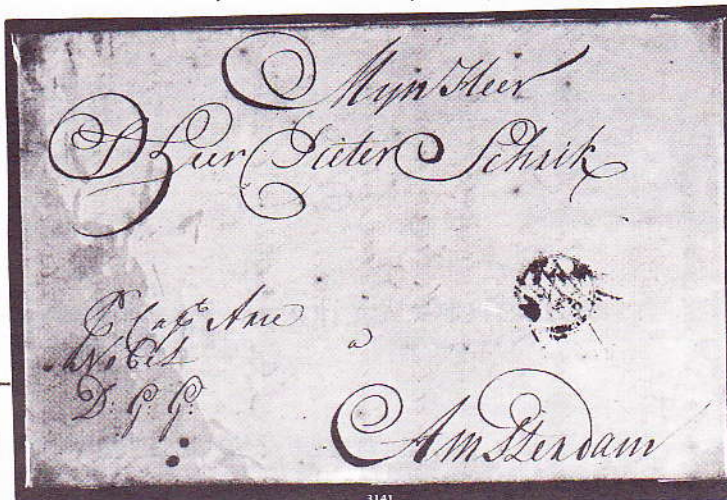 Mijn Heer
D Heer Pieter Schrik
P Capt Arie
Nobel
D: G: G:
a
Amsterdam
3141